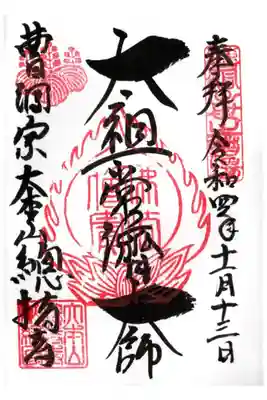 奉拝 令和四年十一月十三日
太祖常濟大師
曹洞宗大本山總持寺